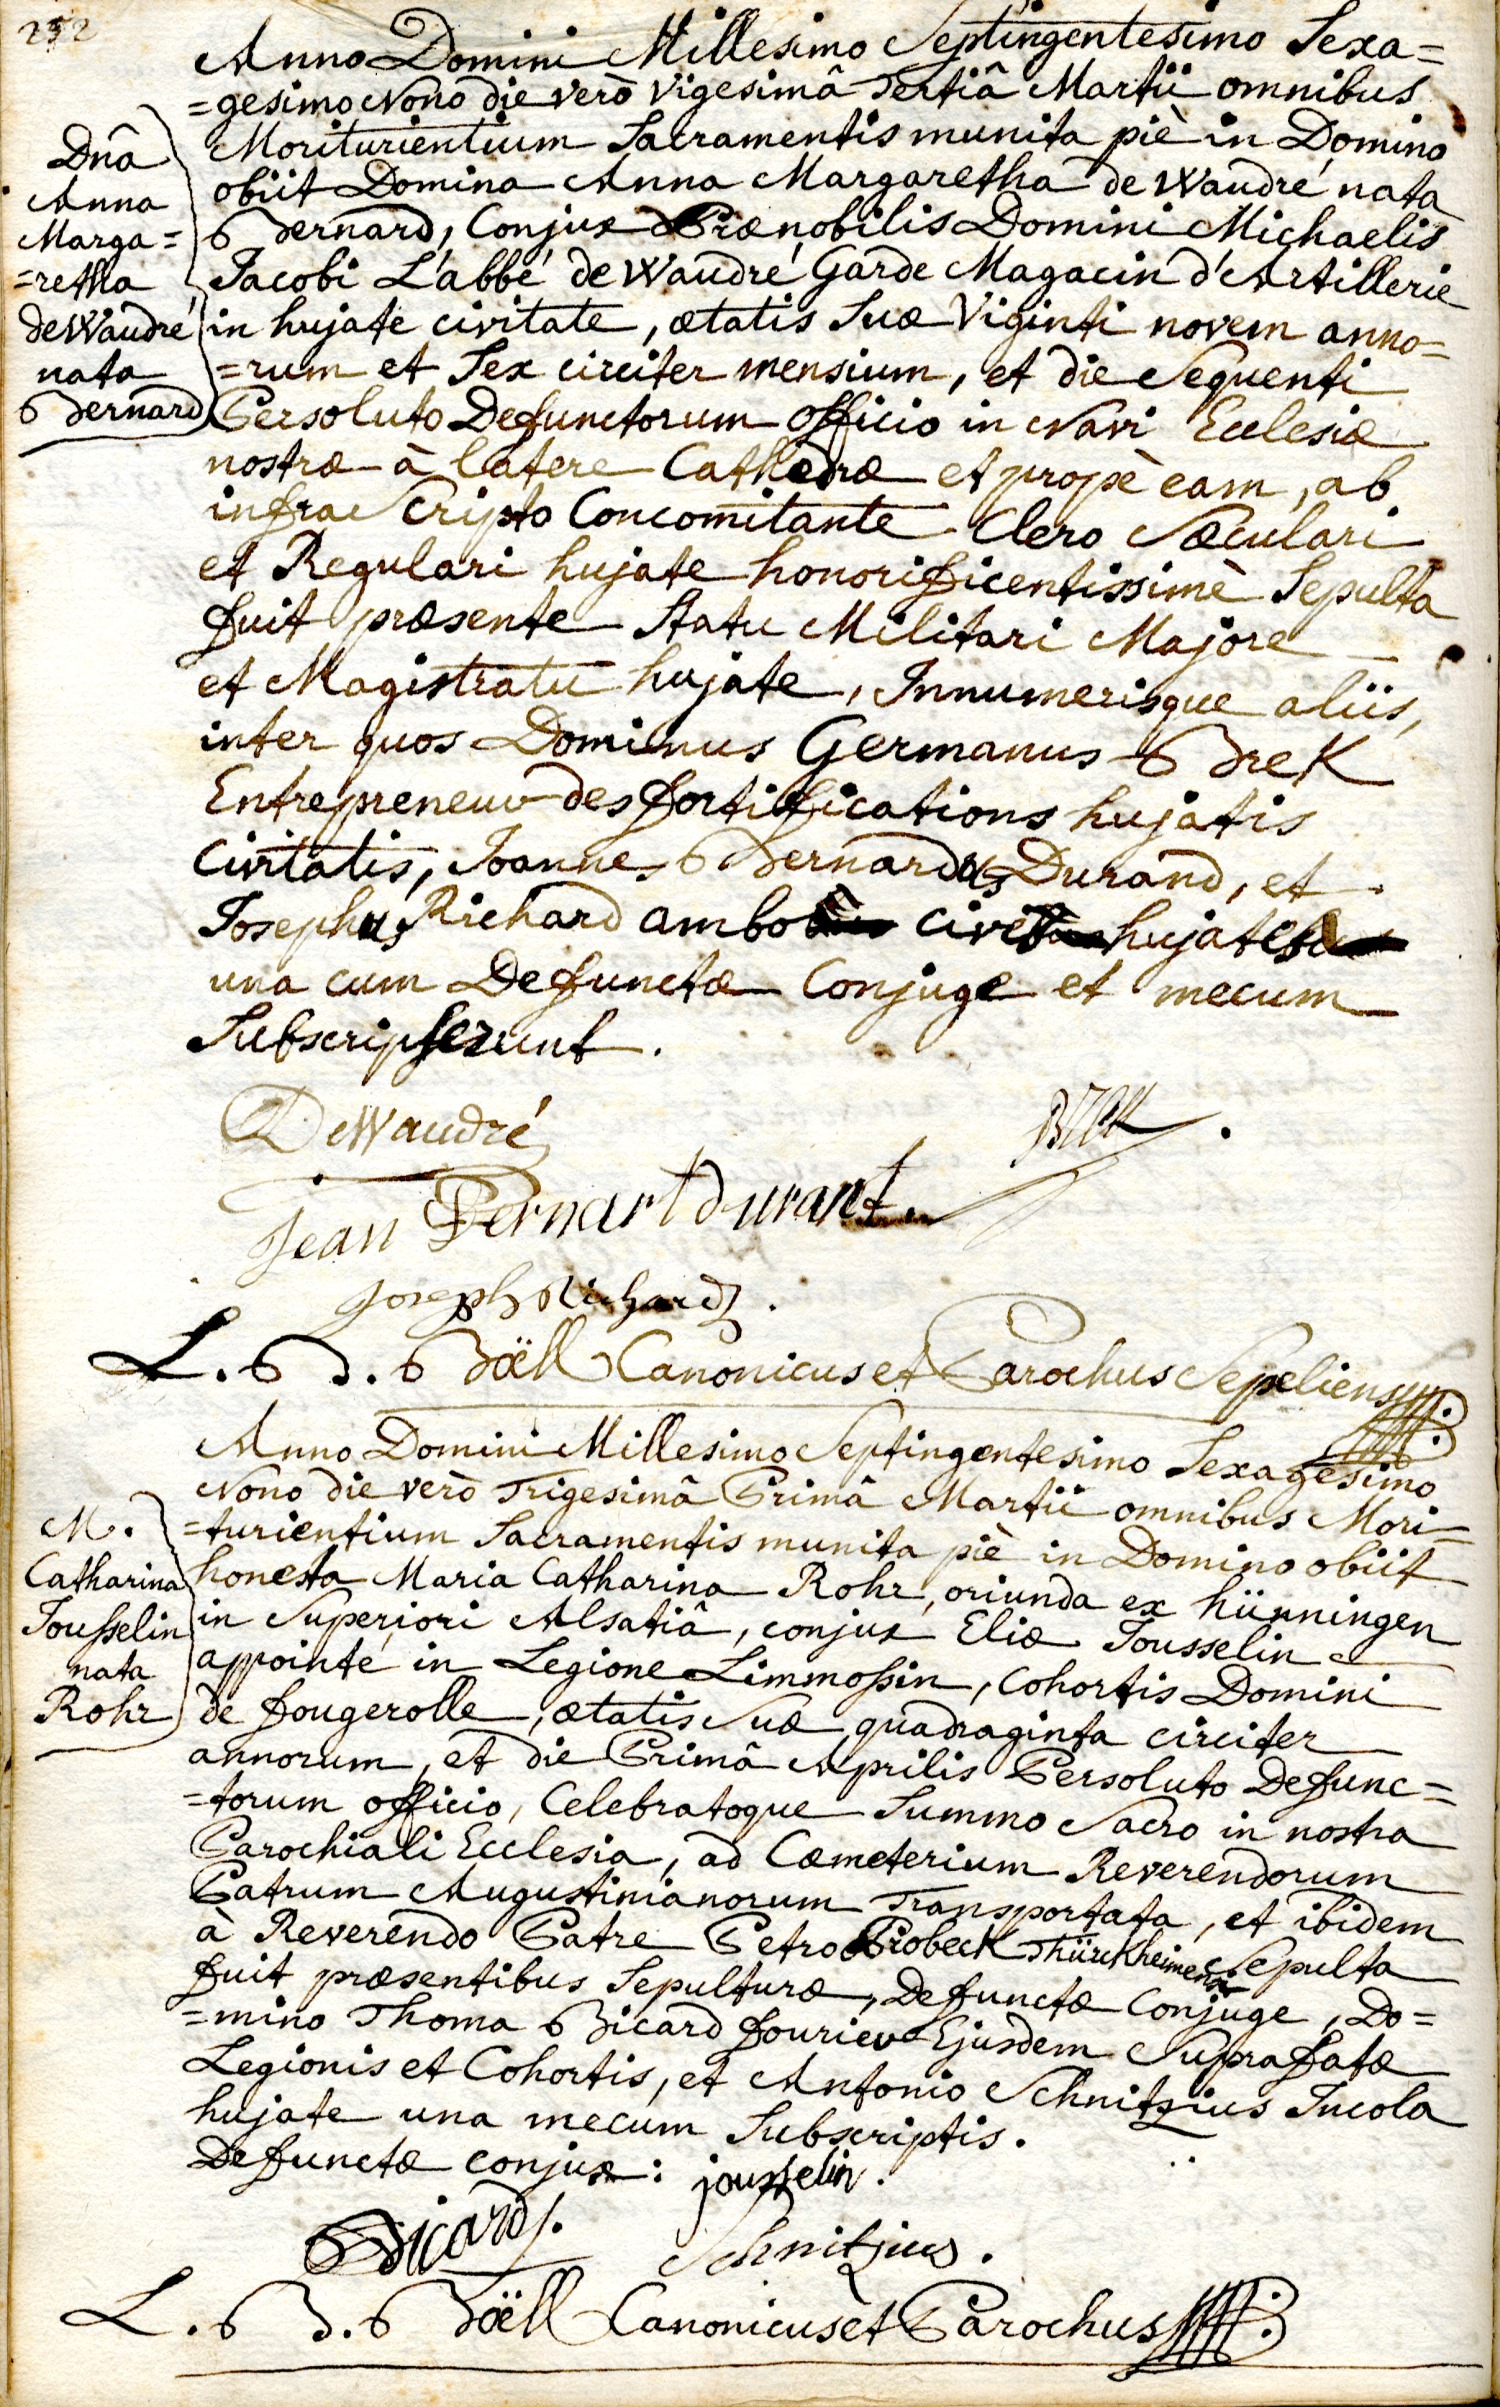 252
Anno Domini Millesimo Septingentesimo Sexa=
=gesimo Nono die verò Vigesimâ Tertiâ Martii omnibus
Moriturientium Sacramentis munita piè in Domino
obiit Domina Anna Margaretha de Waudré nata
Bernard, Conjux Prænobilis Domini Michaelis
Jacobi L'abbé de Waudré Garde Magacin d'Artillerie
in hujate civitate, ætatis Suæ Viginti novem anno=
=rum et Sex circiter mensium, et die Sequenti
Persoluto Defunctorum officio in Navi Ecclesiæ
nostræ à latere Cathedræ et propè eam, ab
infra Scripto Concomitante Clero Sæculari
et Regulari hujate honorificentissimè Sepulta
fuit præsente Statu Militari Majore
et Magistratu hujate, Innumerisque aliis,
inter quos Dominus Germanus Brek
Entrepreneur des fortifications hujatis
Civitatis, Joannes Bernardus Durand, et
Josephus Richard ambo cives hujates
una cum Defunctæ Conjuge et mecum
Subscripserunt.
Dnâ
Anna
Marga=
=retha
de Waudré
nata
Bernard
DeWaudré
Brek
Jean Bernart durant.
Joseph Richard.
L. B. Boëll Canonicus et Parochus Sepeliens
Anno Domini Millesimo Septingentesimo Sexagesimo
Nono die verò Trigesimâ Primâ Martii omnibus Mori=
=turientium Sacramentis munita piè in Domino obiit
honesta Maria Catharina Rohr, oriunda ex hünningen
in Superiori Alsatiâ, conjux Eliæ Jousselin
appointé in Legione Limmossin, Cohortis Domini
de fougerolle, ætatis Suæ quadraginta circiter
annorum, et die Primâ Aprilis Persoluto Defunc=
=torum officio, Celebratoque Summo Sacro in nostra
Parochiali Ecclesia, ad Cæmeterium Reverendorum
Patrum Augustinianorum Transportata, et ibidem
à Reverendo Patre Petro Probeck Thürckheimensi Sepulta
fuit præsentibus Sepulturæ, Defunctæ Conjuge, Do=
=mino Thoma Bicard fourier Ejusdem Suprafatæ
Legionis et Cohortis, et Antonio Schnitzius Incola
hujate una mecum Subscriptis.
M.
Catharina
Jousselin
nata
Rohr
Defunctæ conjux: jousselin.
Bicard.
Schnitzius.
L. B. Boëll Canonicus et Parochus